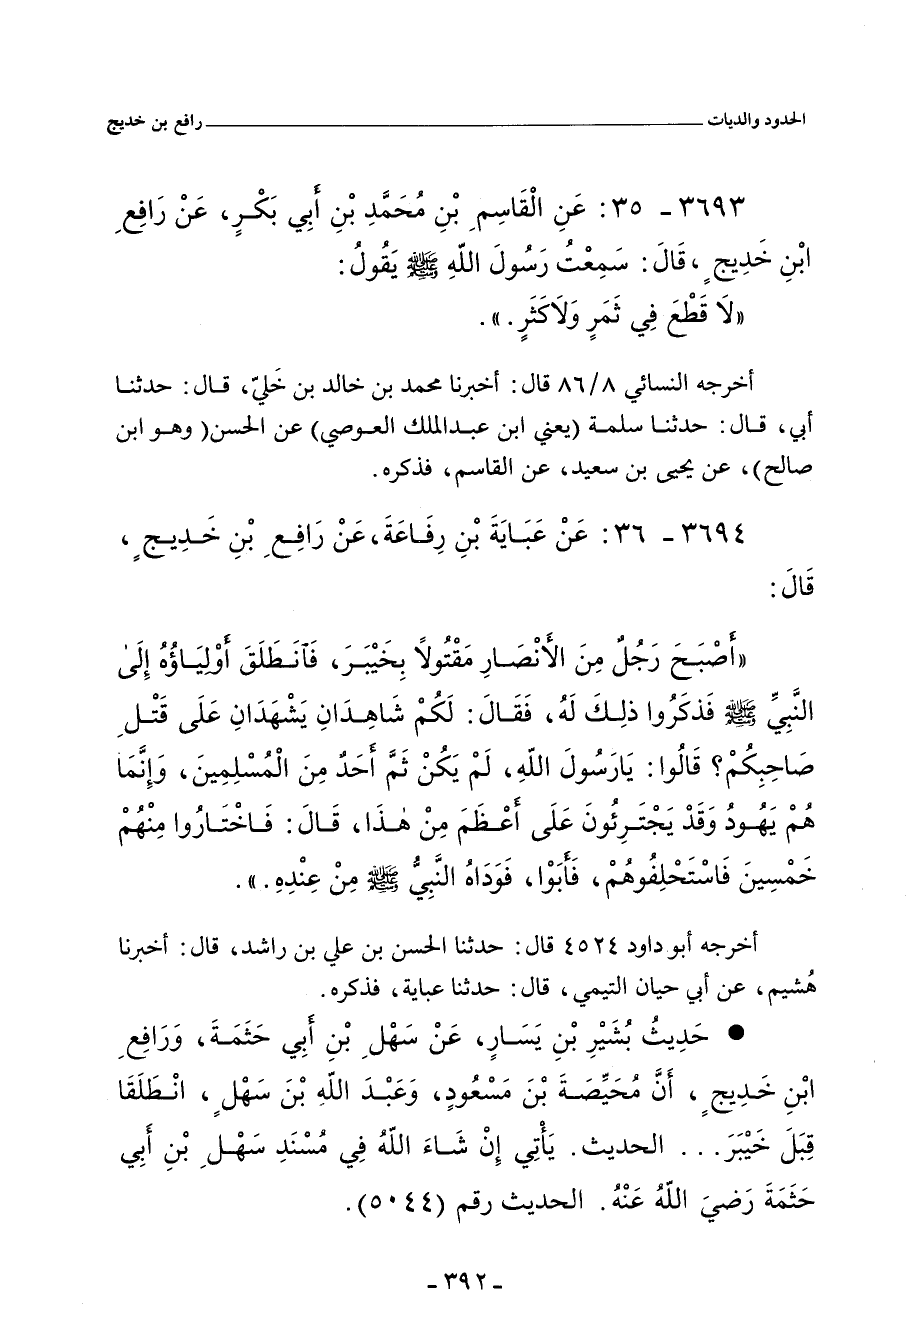 الحدود والديات ــــــــــــــــــــــــــــــــ رافع بن خديج
٣٦٩٣ - ٣٥: عَنِ الْقَاسِمِ بْنِ مُحَمَّدِ بْنِ أَبِي بَكْرٍ، عَنْ رَافِعِ
ابْنِ خَدِيجٍ، قَالَ: سَمِعْتُ رَسُولَ اللّهِ ﷺ يَقُولُ:
«لَا قَطْعَ فِي ثَمَرٍ وَلَا كَثَرٍ.».
أخرجه النسائي ٨٦/٨ قال: أخبرنا محمد بن خالد بن خَليّ، قال: حدثنا
أبي، قال: حدثنا سلمة (يعني ابن عبدالملك العوصي) عن الحسن( وهو ابن
صالح)، عن يحيى بن سعيد، عن القاسم، فذكره.
٣٦٩٤ - ٣٦: عَنْ عَبَايَةَ بْنِ رِفَاعَةَ، عَنْ رَافِعِ بْنِ خَدِيجٍ،
قَالَ:
«أَصْبَحَ رَجُلٌ مِنَ الْأَنْصَارِ مَقْتُولاً بِخَيْبَرَ، فَانْطَلَقَ أَوْلِيَاؤُهُ إِلَىٰ
النَّبِيِّ ﷺ فَذَكَرُوا ذلِكَ لَهُ، فَقَالَ: لَكُمْ شَاهِدَانِ يَشْهَدَانِ عَلَى قَتْلِ
صَاحِبِكُمْ؟ قَالُوا: يَارَسُولَ اللّهِ، لَمْ يَكُنْ ثَمَّ أَحَدٌ مِنَ الْمُسْلِمِينَ، وَإِنَّمَا
هُمْ يَهُودُ وَقَدْ يَجْتَرِئُونَ عَلَى أَعْظَمَ مِنْ هٰذَا، قَالَ: فَاخْتَارُوا مِنْهُمْ
خَمْسِينَ فَاسْتَحْلِفُوهُمْ، فَأَبَوْا، فَوَدَاهُ النَّبِيُّ ﷺ مِنْ عِنْدِهِ.».
أخرجه أبو داود ٤٥٢٤ قال: حدثنا الحسن بن علي بن راشد، قال: أخبرنا
هُشيم، عن أبي حيان التيمي، قال: حدثنا عباية، فذكره.
● حَدِيثُ بُشَيْرِ بْنِ يَسَارٍ، عَنْ سَهْلِ بْنِ أَبِي حَثْمَةَ، وَرَافِعِ
ابْنِ خَدِيجٍ، أَنَّ مُحَيِّصَةَ بْنَ مَسْعُودٍ، وَعَبْدَ اللّهِ بْنَ سَهْلٍ، انْطَلَقَا
قِبَلَ خَيْبَرَ... الحديث. يَأْتِي إِنْ شَاءَ اللّهُ فِي مُسْنَدِ سَهْلِ بْنِ أَبِي
حَثْمَةَ رَضِيَ اللّهُ عَنْهُ. الحديث رقم (٥٠٤٤).
- ٣٩٢ -